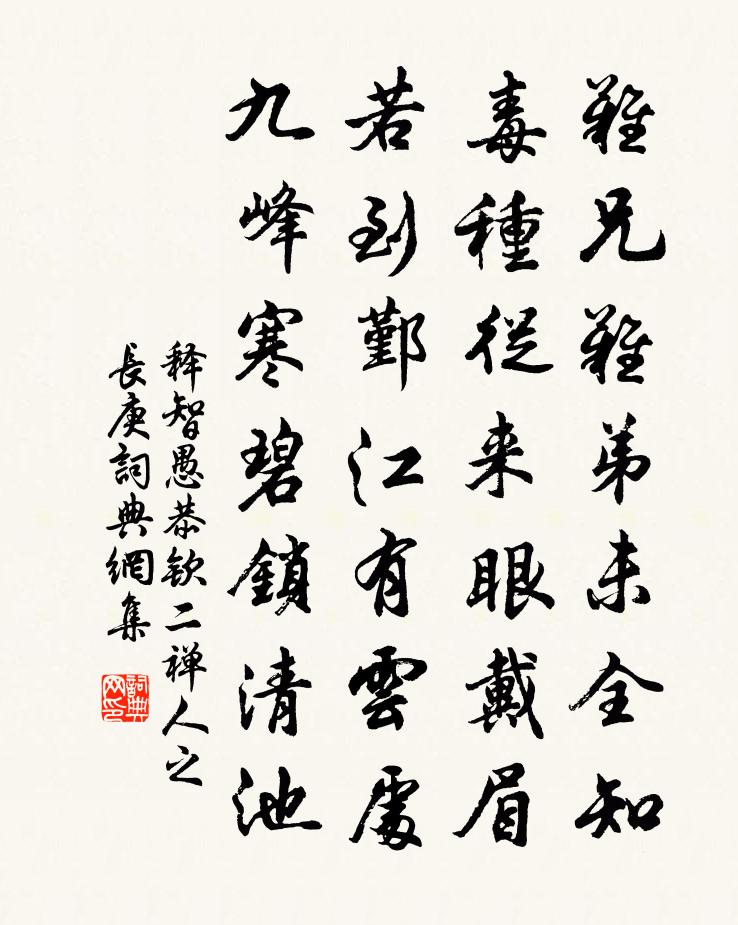 難兄難弟未全知
毒種從来眼戴眉
若到鄞江有雲處
九峰寒碧鎖清池
释智愚恭欽二禅人之
長庚詞典網集
詞典
网印